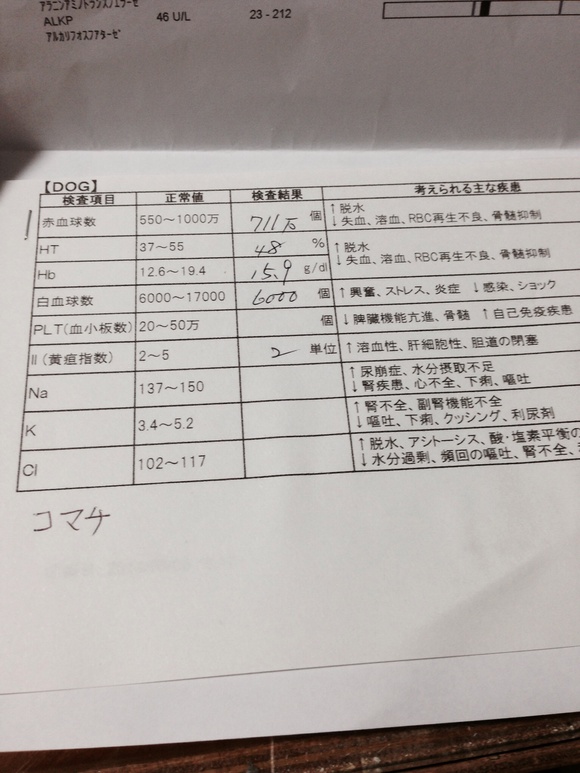 アラニンアミノトランスフェラーゼ
ALKP 46 U/L 23 - 212
アルカリフオスフアターゼ
【DOG】
検査項目 正常値 検査結果 考えられる主な疾患
赤血球数 550～1000万 711万 個 ↑脱水
↓失血、溶血、RBC再生不良、骨髄抑制
HT 37～55 48 % ↑脱水
↓失血、溶血、RBC再生不良、骨髄抑制
Hb 12.6～19.4 15.9 g/dl
白血球数 6000～17000 6000 個 ↑興奮、ストレス、炎症 ↓感染、ショック
PLT(血小板数) 20～50万 個 ↓脾臓機能亢進、骨髄 ↑自己免疫疾患
II(黄疸指数) 2～5 2 単位 ↑溶血性、肝細胞性、胆道の閉塞
Na 137～150 ↑尿崩症、水分摂取不足
↓腎疾患、心不全、下痢、嘔吐
K 3.4～5.2 ↑腎不全、副腎機能不全
↓嘔吐、下痢、クッシング、利尿剤
Cl 102～117 ↑脱水、アシトーシス、酸・塩素平衡の
↓水分過剰、頻回の嘔吐、腎不全、
コマチ